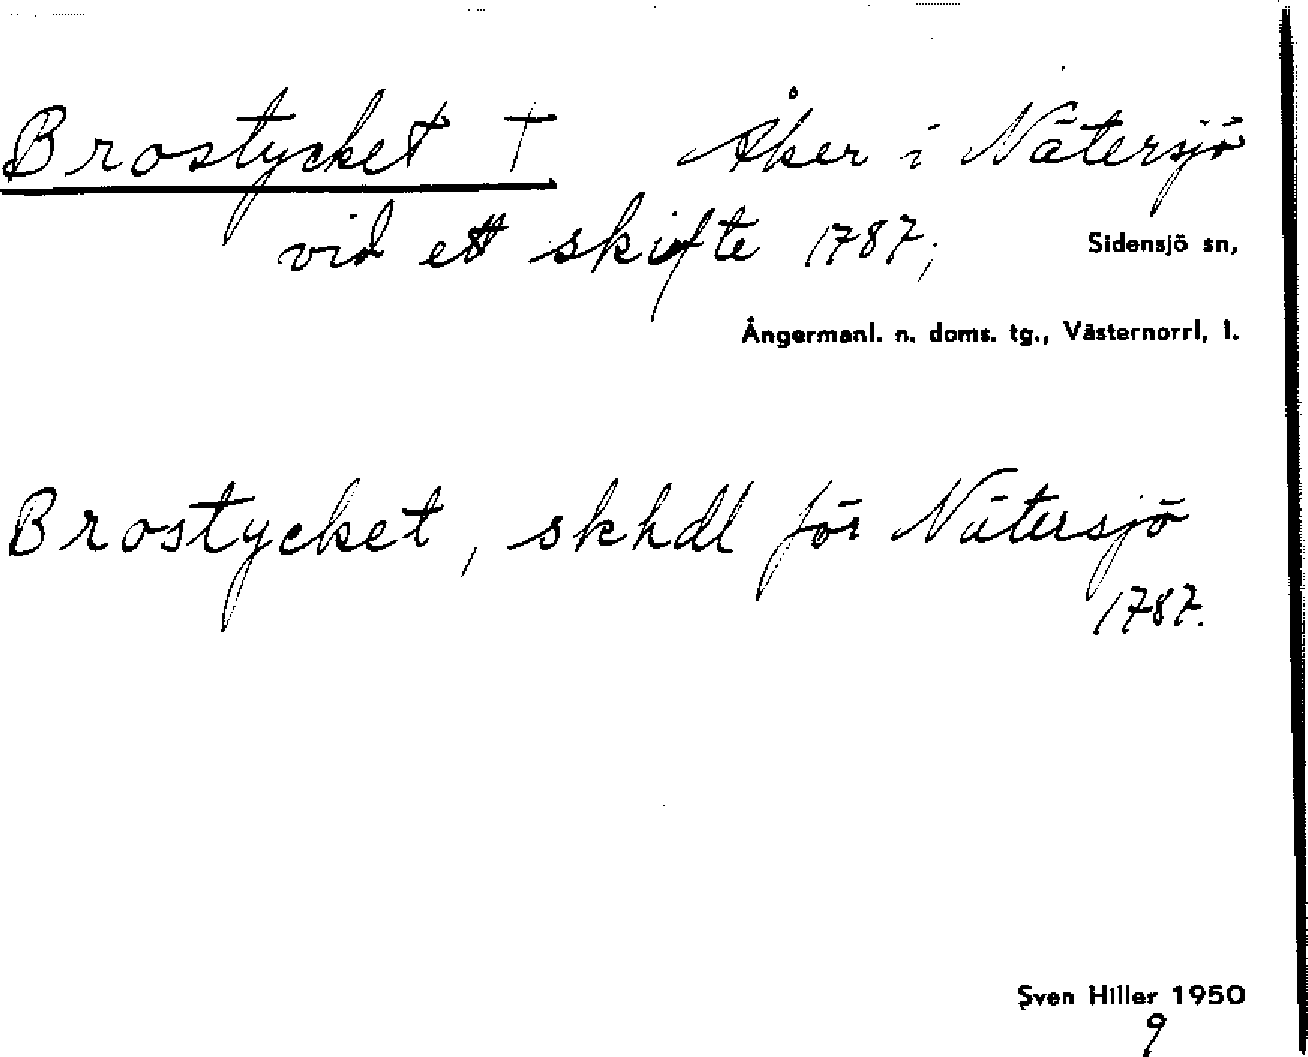 Brostycket † Åker i Nätersjö
vid ett skifte 1787;
Sidensjö sn,
Ångermanl. n. doms. tg., Västernorrl. l.
Brostycket, skhdl för Nätersjö
1787.
Sven Hiller 1950
9